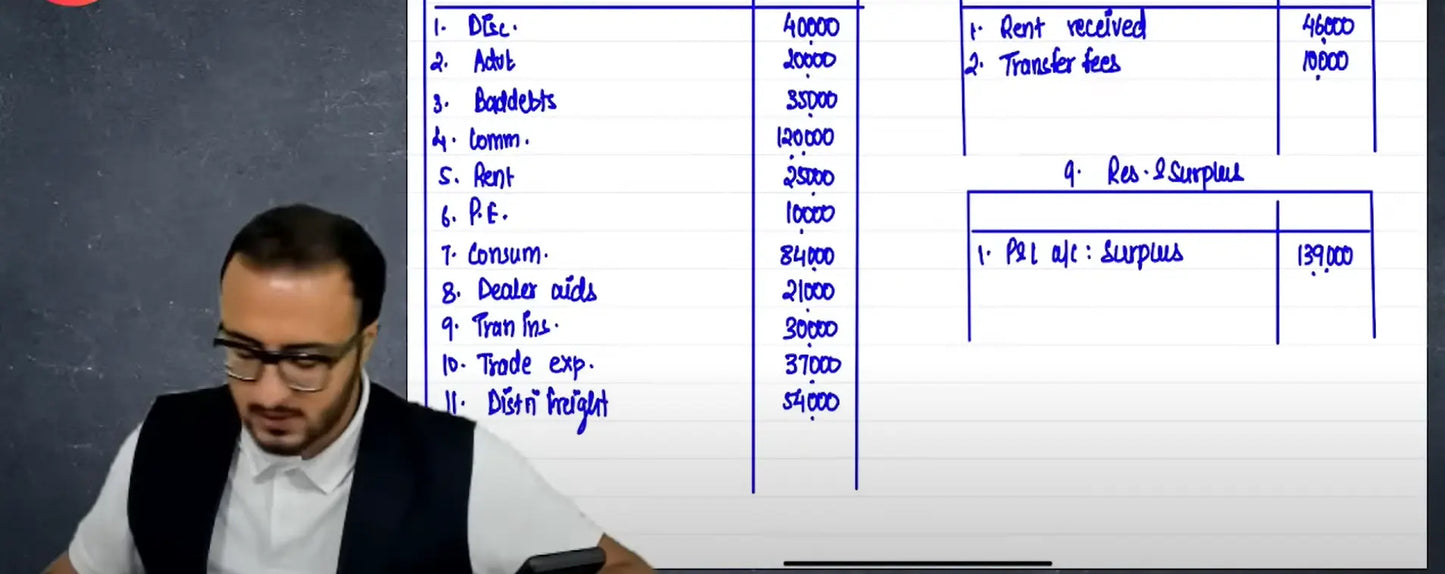 1. Disc. 40000
2. Advt 20000
3. Baddebts 35000
4. Comm. 120000
5. Rent 25000
6. P.E. 10000
7. Consum. 84000
8. Dealer aids 21000
9. Tran Ins. 30000
10. Trade exp. 37000
11. Distri freight 54000
1. Rent received 46000
2. Transfer fees 10000
9. Res. & Surplus
1. P&L a/c : Surplus 139000